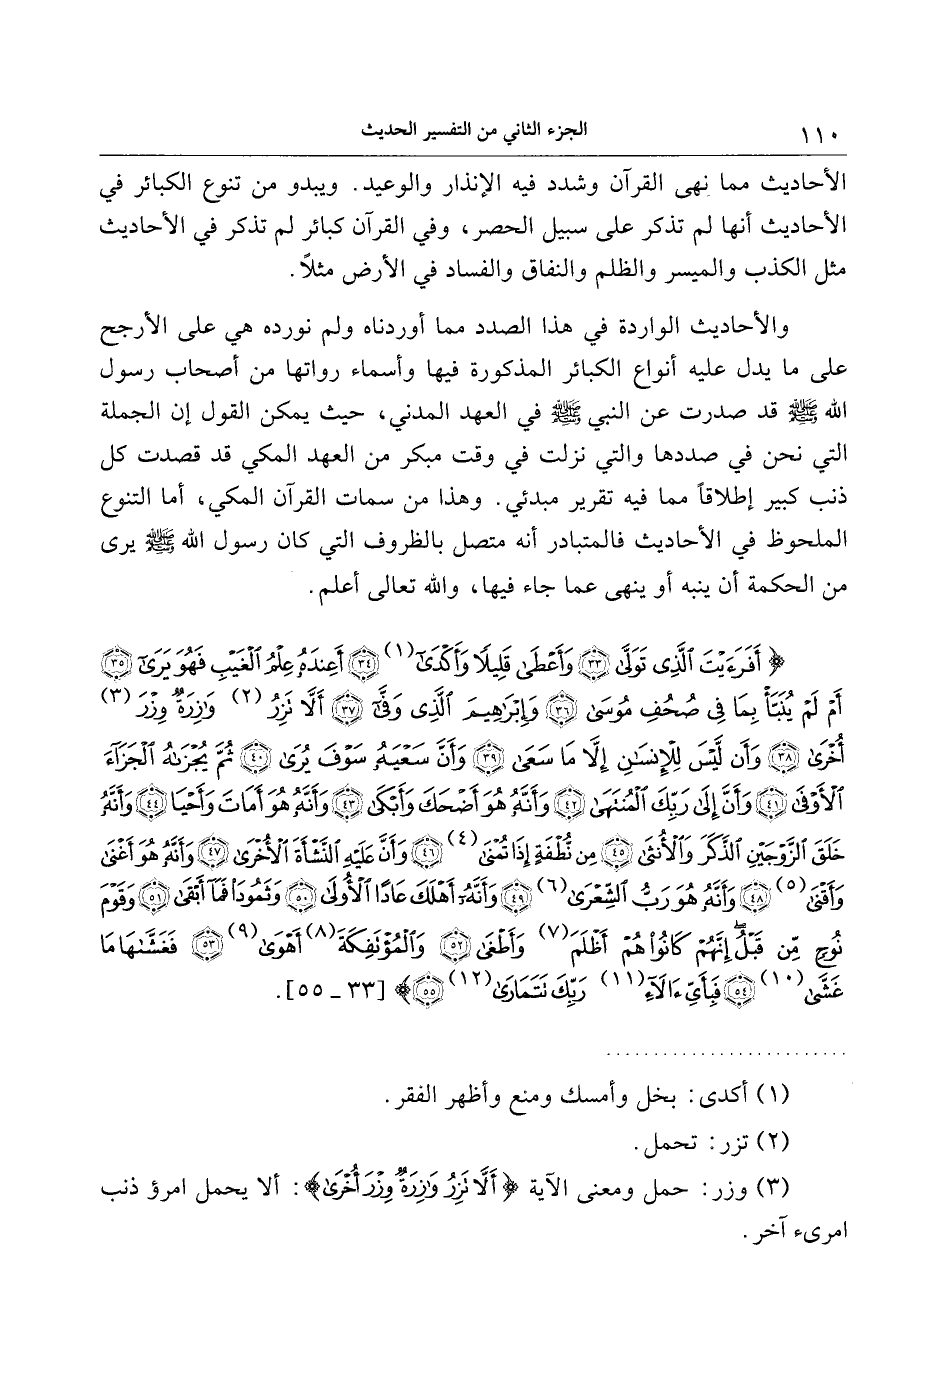 ١١٠ الجزء الثاني من التفسير الحديث
الأحاديث مما نهى القرآن وشدد فيه الإنذار والوعيد. ويبدو من تنوع الكبائر في
الأحاديث أنها لم تذكر على سبيل الحصر، وفي القرآن كبائر لم تذكر في الأحاديث
مثل الكذب والميسر والظلم والنفاق والفساد في الأرض مثلاً.
والأحاديث الواردة في هذا الصدد مما أوردناه ولم نورده هي على الأرجح
على ما يدل عليه أنواع الكبائر المذكورة فيها وأسماء رواتها من أصحاب رسول
الله ﷺ قد صدرت عن النبي ﷺ في العهد المدني، حيث يمكن القول إن الجملة
التي نحن في صددها والتي نزلت في وقت مبكر من العهد المكي قد قصدت كل
ذنب كبير إطلاقاً مما فيه تقرير مبدئي. وهذا من سمات القرآن المكي، أما التنوع
الملحوظ في الأحاديث فالمتبادر أنه متصل بالظروف التي كان رسول الله ﷺ يرى
من الحكمة أن ينبه أو ينهى عما جاء فيها، والله تعالى أعلم.
﴿ أَفَرَءَيْتَ ٱلَّذِى تَوَلَّىٰ ٣٣ وَأَعْطَىٰ قَلِيلًا وَأَكْدَىٰٓ (١) ٣٤ أَعِندَهُۥ عِلْمُ ٱلْغَيْبِ فَهُوَ يَرَىٰٓ ٣٥
أَمْ لَمْ يُنَبَّأْ بِمَا فِى صُحُفِ مُوسَىٰ ٣٦ وَإِبْرَٰهِيمَ ٱلَّذِى وَفَّىٰٓ ٣٧ أَلَّا تَزِرُ (٢) وَازِرَةٌ وِزْرَ (٣)
أُخْرَىٰ ٣٨ وَأَن لَّيْسَ لِلْإِنسَٰنِ إِلَّا مَا سَعَىٰ ٣٩ وَأَنَّ سَعْيَهُۥ سَوْفَ يُرَىٰ ٤٠ ثُمَّ يُجْزَىٰهُ ٱلْجَزَآءَ
ٱلْأَوْفَىٰ ٤١ وَأَنَّ إِلَىٰ رَبِّكَ ٱلْمُنتَهَىٰ ٤٢ وَأَنَّهُۥ هُوَ أَضْحَكَ وَأَبْكَىٰ ٤٣ وَأَنَّهُۥ هُوَ أَمَاتَ وَأَحْيَا ٤٤ وَأَنَّهُۥ
خَلَقَ ٱلزَّوْجَيْنِ ٱلذَّكَرَ وَٱلْأُنثَىٰ ٤٥ مِن نُّطْفَةٍ إِذَا تُمْنَىٰ (٤) ٤٦ وَأَنَّ عَلَيْهِ ٱلنَّشْأَةَ ٱلْأُخْرَىٰ ٤٧ وَأَنَّهُۥ هُوَ أَغْنَىٰ
وَأَقْنَىٰ (٥) ٤٨ وَأَنَّهُۥ هُوَ رَبُّ ٱلشِّعْرَىٰ (٦) ٤٩ وَأَنَّهُۥٓ أَهْلَكَ عَادًا ٱلْأُولَىٰ ٥٠ وَثَمُودَا۟ فَمَآ أَبْقَىٰ ٥١ وَقَوْمَ
نُوحٍ مِّن قَبْلُ إِنَّهُمْ كَانُوا۟ هُمْ أَظْلَمَ (٧) وَأَطْغَىٰ ٥٢ وَٱلْمُؤْتَفِكَةَ (٨) أَهْوَىٰ (٩) ٥٣ فَغَشَّىٰهَا مَا
غَشَّىٰ (١٠) ٥٤ فَبِأَىِّ ءَالَآءِ (١١) رَبِّكَ تَتَمَارَىٰ (١٢) ٥٥ ﴾ [٣٣ ـ ٥٥].
(١) أكدى: بخل وأمسك ومنع وأظهر الفقر.
(٢) تزر: تحمل.
(٣) وزر: حمل ومعنى الآية ﴿ أَلَّا تَزِرُ وَازِرَةٌ وِزْرَ أُخْرَىٰ ﴾: ألا يحمل امرؤ ذنب
امرىء آخر.